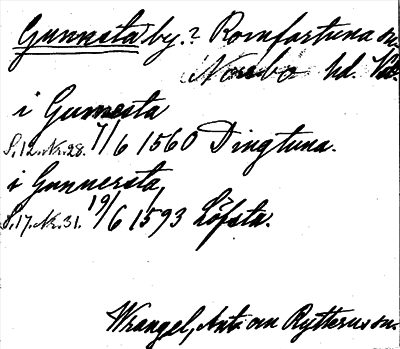 Gunnsta by.? Romfartuna sn.
Norrbo hd. Vstm.
i Gumesta
S. 12. Nr. 28. 7/6 1560 Dingtuna.
i Gunnersta
S. 17. Nr. 31. 19/6 1593 Löfsta.
Wrangel, Ant. om Rytterns sn.